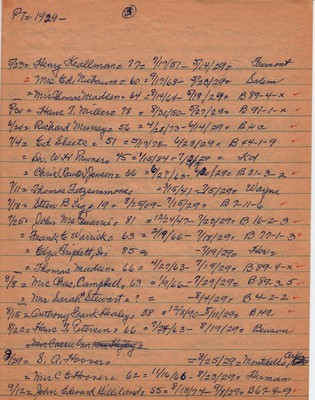 PT= 1929-
③
5/23= Henry Keallman= 77= 7/17/51- 5/14/29= Fremont
= Mrs Ed = 60= 9/17/68- 5/23/29= Salem
= Mrs Thomas Madsen= 64= 9/14/64- 5/18/29= B 89-4-X
6/20= Hans T. Miller= 78= 8/30/50- 5/27/29= B 91-1-X
6/20= Richard Mensey= 56= 4/28/73- 6/14/29= B HC
7/4= Ed Sheets= 51= 7/7/78- 6/23/29= B 84-1-9
= Dr W H Pruner= 45= 1/15/84- 7/2/29= Kd
= Chris Jensen= 66= 6/27/63- 6/2/29= B 31-3-2
7/11= Thomas Fitzsimmons= 2/15/41- 7/5/29= Wayne
7/18= Sten Berg= 19= 8/25/09- 7/15/29= B 7-11-6
7/25= John McQuarrie= 81= 12/24/47- 7/23/29= B 16-2-3
= Frank E Warrick= 63= 7/9/66- 7/18/29= B 77-1-3
= Eliza Triplett, Dr= 85= - 7/19/29= Her
= Thomas Madsen= 66= 4/27/63- 7/19/29= B 89-4-X
8/8= Mrs Chas, Campbell, 63= 1/9/66- 7/29/29= B 84-2,5
= Mrs Sarah Stewart= ?= - 8/4/29= B 4-2-2
8/15= Anthony Frank Healey= 38= 12/8/90- 8/11/29= B HC
8/22= Hans T. Petersen= 66= 7/24/63- 8/19/29= Benson
= Mrs Carrie Van
8/29= S. A. Hoover= = 8/25/29= Monticello, Ark
= Mrs C E Hoover= 62= 11/16/66- 8/23/29= Herman
9/12= John Edward Gilliland= 55= 8/13/74- 9/8/29= B 62-4-9